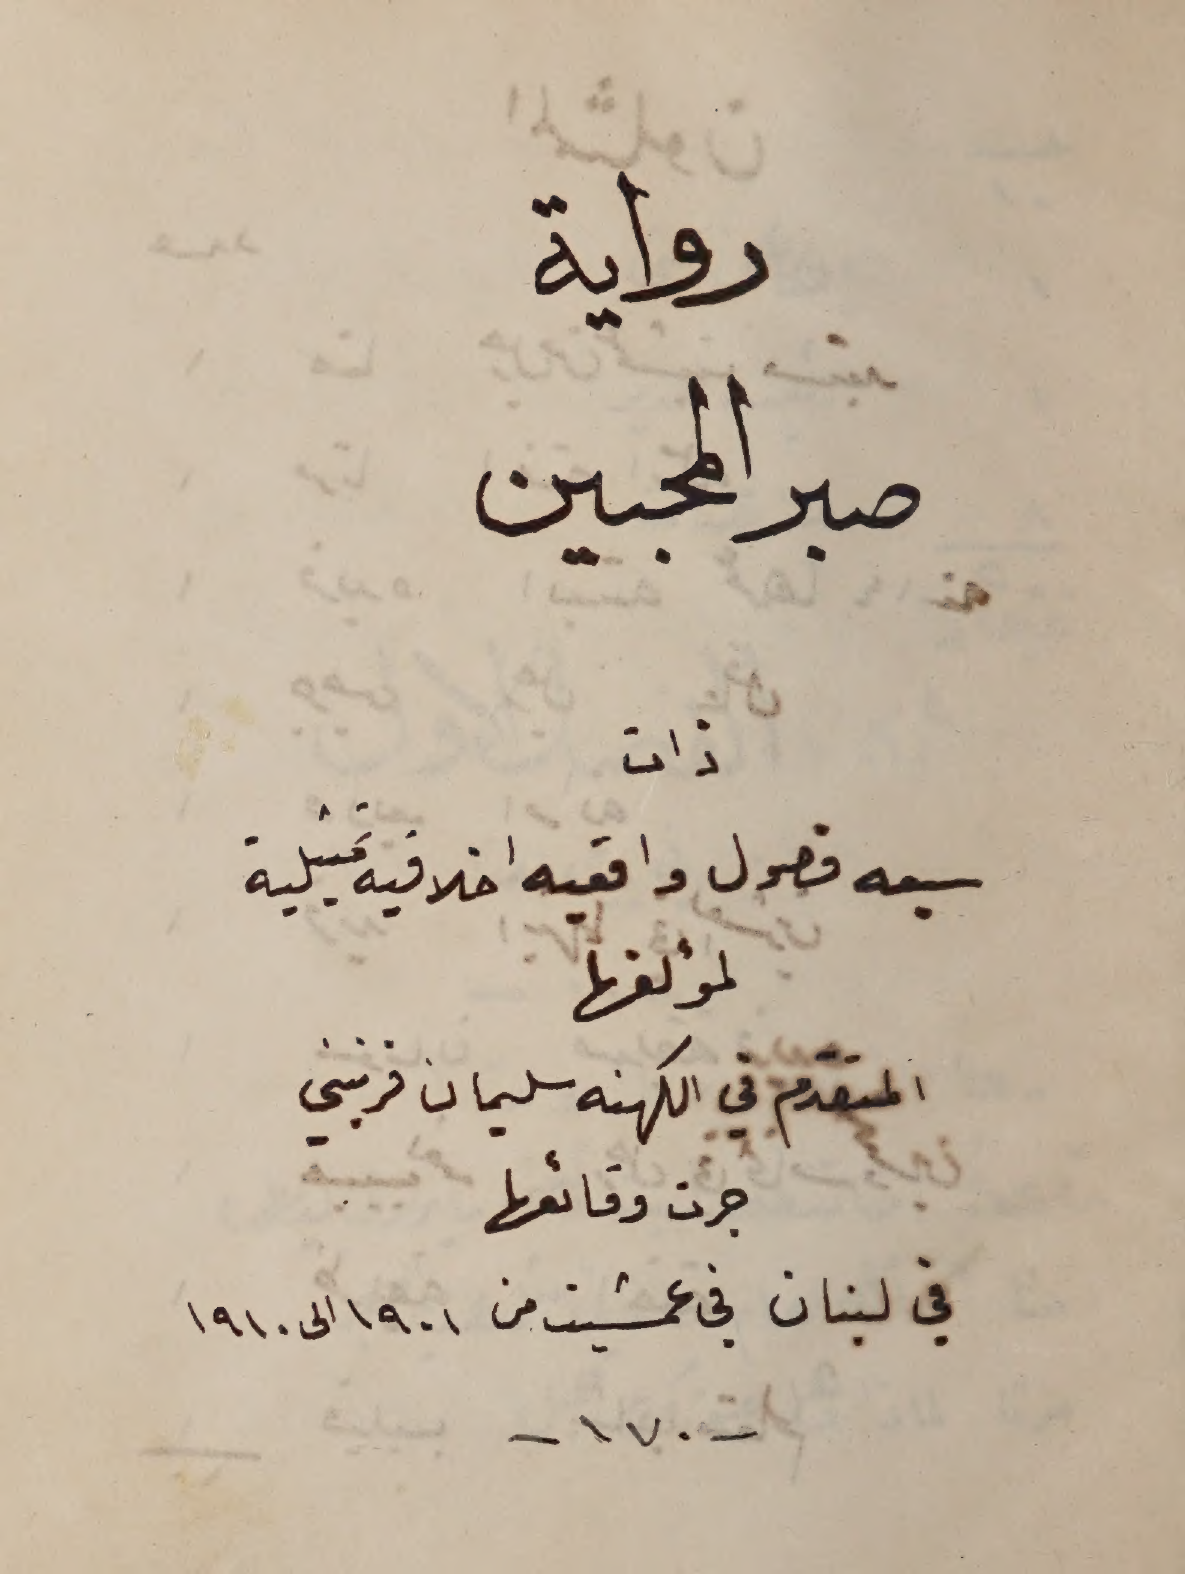 رواية
صبر المحبين
ذات
سبعه فصول واقعيه اخلاقية تمثيلية
لمؤلفها
المتقدم في الكهنه سليمان فرنيني
جرت وقائعها
في لبنان في عمشيت من ١٩٠١ الى ١٩١٠
- ١٧٠ -